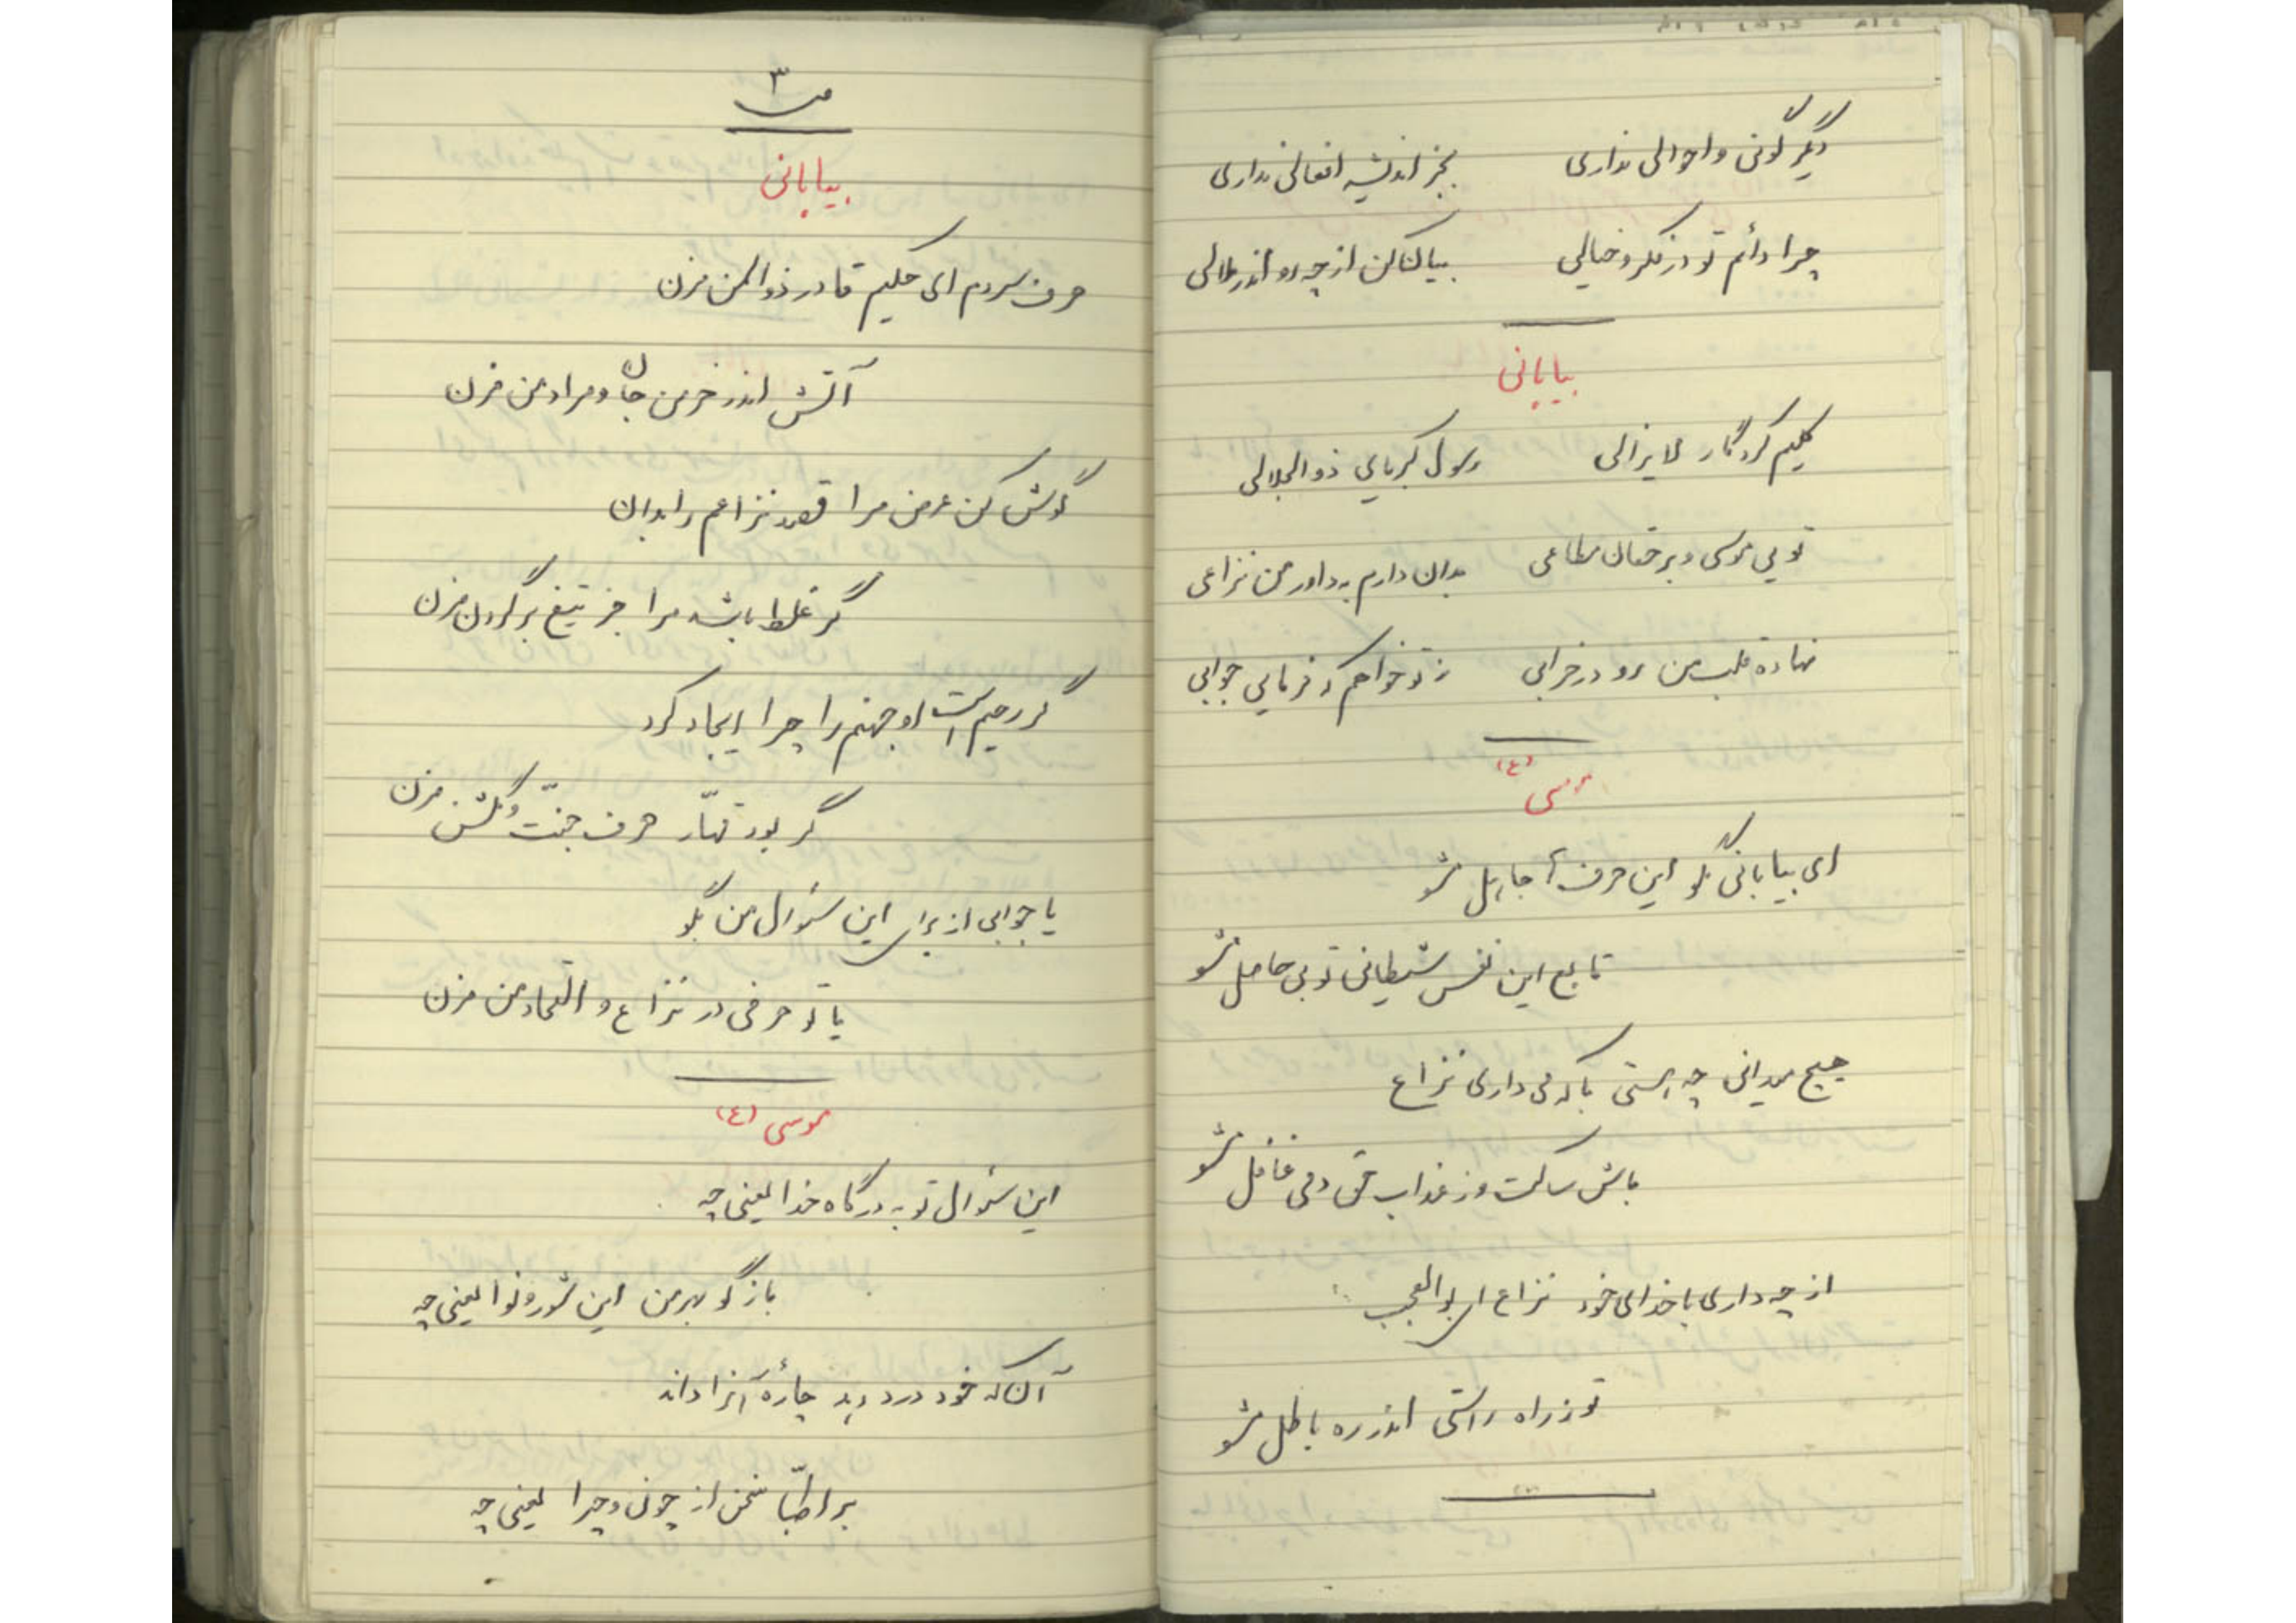 دیگرگونی و احوالی نداری بجز اندیشه افعالی نداری
چرا دائم تو در فکر و خیالی بیا کن از چه رو اندر ملالی
بیابانی
کلیم کردگار لایزالی رسول کبریای ذوالجلالی
تویی موسی و بر خقان مطاعی بدان دارم به داور من نزاعی
نهاده قلب من رو در خرابی ز تو خواهم که فرمایی جوابی
موسی (ع)
ای بیابانی مگو این حرف‌ها جاهل مشو
تابع این نفس شیطانی تو بی حاصل مشو
هیچ میدانی چه هستی با که می داری نزاع
باش ساکت وز عذاب حق دمی غافل مشو
از چه داری با خدای خود نزاع ای بوالعجب
تو ز راه راستی اندر ره باطل مشو
۳
بیابانی
حرف سردم ای حکیم قادر ذوالمن مزن
آتش اندر خرمن جان و مراد من مزن
گوش کن عرض مرا قصد نزاعم را بدان
گر غلط باشد مرا جز تیغ بر گردن مزن
گر رحیم است او جهنم را چرا ایجاد کرد
گر بود قهّار حرف جنّت و گلشن مزن
یا جوابی از برای این سئوال من بگو
یا تو حرفی در نزاع و التجاء من مزن
موسی (ع)
این سئوال تو به درگاه خدا یعنی چه
بازگو بهر من این شور و نوا یعنی چه
آنکه خود درد دهد چارهٔ آنرا داند
بر اطبّا سخن از چون و چرا یعنی چه